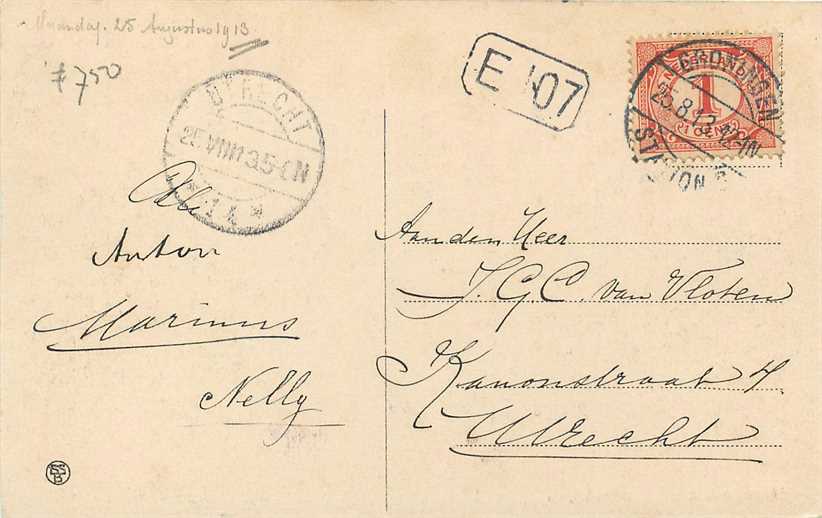 Maandag. 25 Augustus 1913
f 750
UTRECHT
25 VIII 13 5-6N
1 K *
E 107
NEDERLAND
1
1 CENT
GRONINGEN
25.8.13 12-1N
STATION
Anton
Marinus
Nelly
Aan den Heer
J. G. C. van Vloten
Kanonstraat 4.
Utrecht